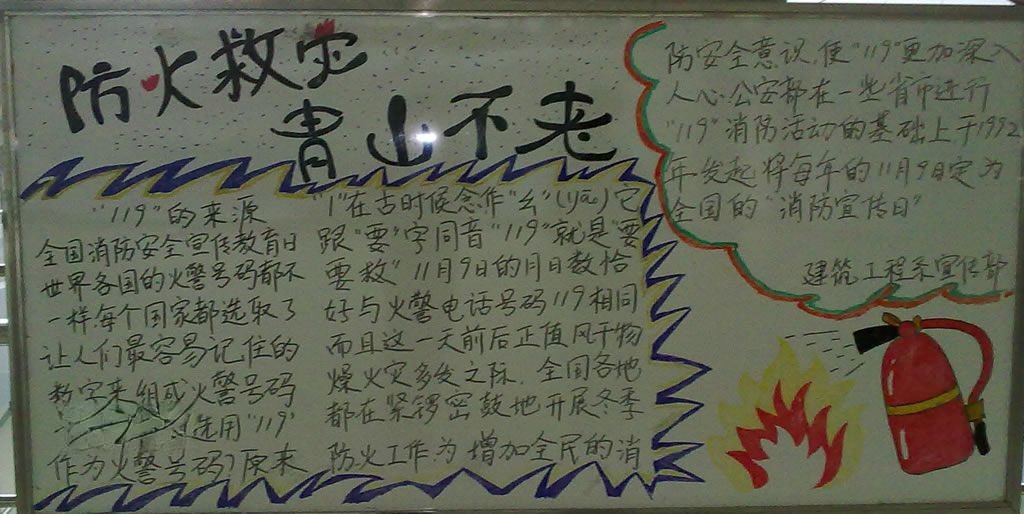 防火救灾
青山不老
"119"的来源
全国消防安全宣传教育日
世界各国的火警号码都不
一样,每个国家都选取了
让人们最容易记住的
数字来组成火警号码
选用"119"
作为火警号码?原来
"1"在古时候念作"幺"(yāo)它
跟"要"字同音"119"就是"要
要救"11月9日的月日数恰
好与火警电话号码119相同
而且这一天前后正值风干物
燥火灾多发之际.全国各地
都在紧锣密鼓地开展冬季
防火工作为增加全民的消
防安全意识,使"119"更加深入
人心.公安部在一些省市进行
"119"消防活动的基础上于1992
年发起将每年的11月9日定为
全国的"消防宣传日"
建筑工程系宣传部